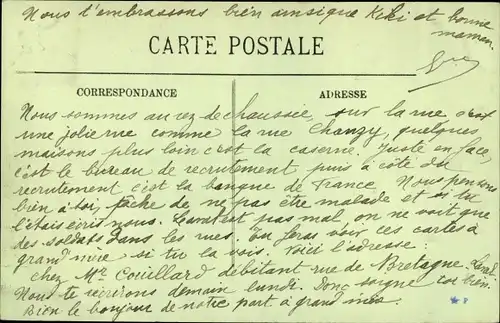 Nous t'embrassons bien ainsique Kiki et bonne
maman.
CARTE POSTALE
CORRESPONDANCE
ADRESSE
Nous sommes au rez de chaussée, sur la rue c'est
une jolie rue comme la rue Chanzy, quelques
maisons plus loin c'est la caserne. Juste en face,
c'est le bureau de recrutement puis à côté du
recrutement c'est la banque de France. Nous pensons
bien à toi, tâche de ne pas être malade et si tu
l'étais écris nous. Laval est pas mal on ne voit que
des soldats dans les rues. Tu feras voir ces cartes à
grand mère si tu la vois. Voici l'adresse:
chez Mr Couillard débitant rue de Bretagne Laval.
Nous te récrirons demain lundi. Donc soigne toi bien.
Bien le bonjour de notre part à grand mère.